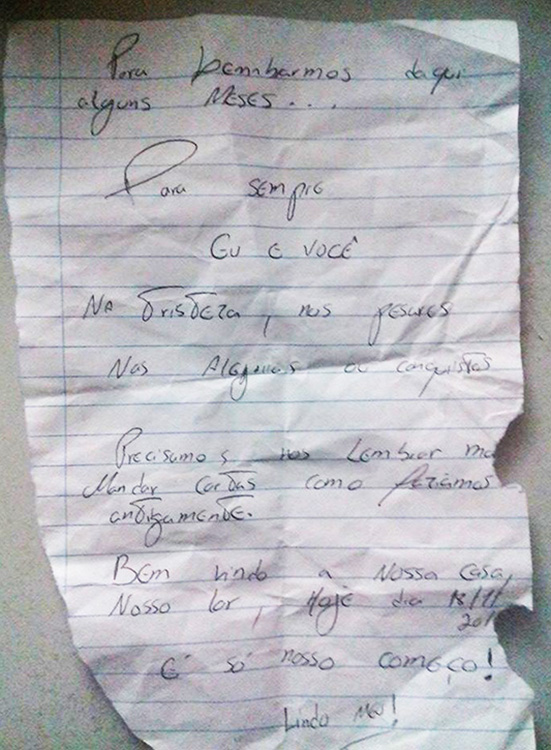 Para Lembrarmos daqui
alguns MESES...
Para SEMPRE
EU E VOCÊ
NA TRISTEZA, nos pesares
Nas Alegrias ou conquistas
Precisamos nos Lembrar
Mandar CARTAS como fazíamos
antigamente.
BEM vindo a Nossa casa,
Nosso lar, Hoje dia 18/11
É só nosso COMEÇO!
Lindo MEU!